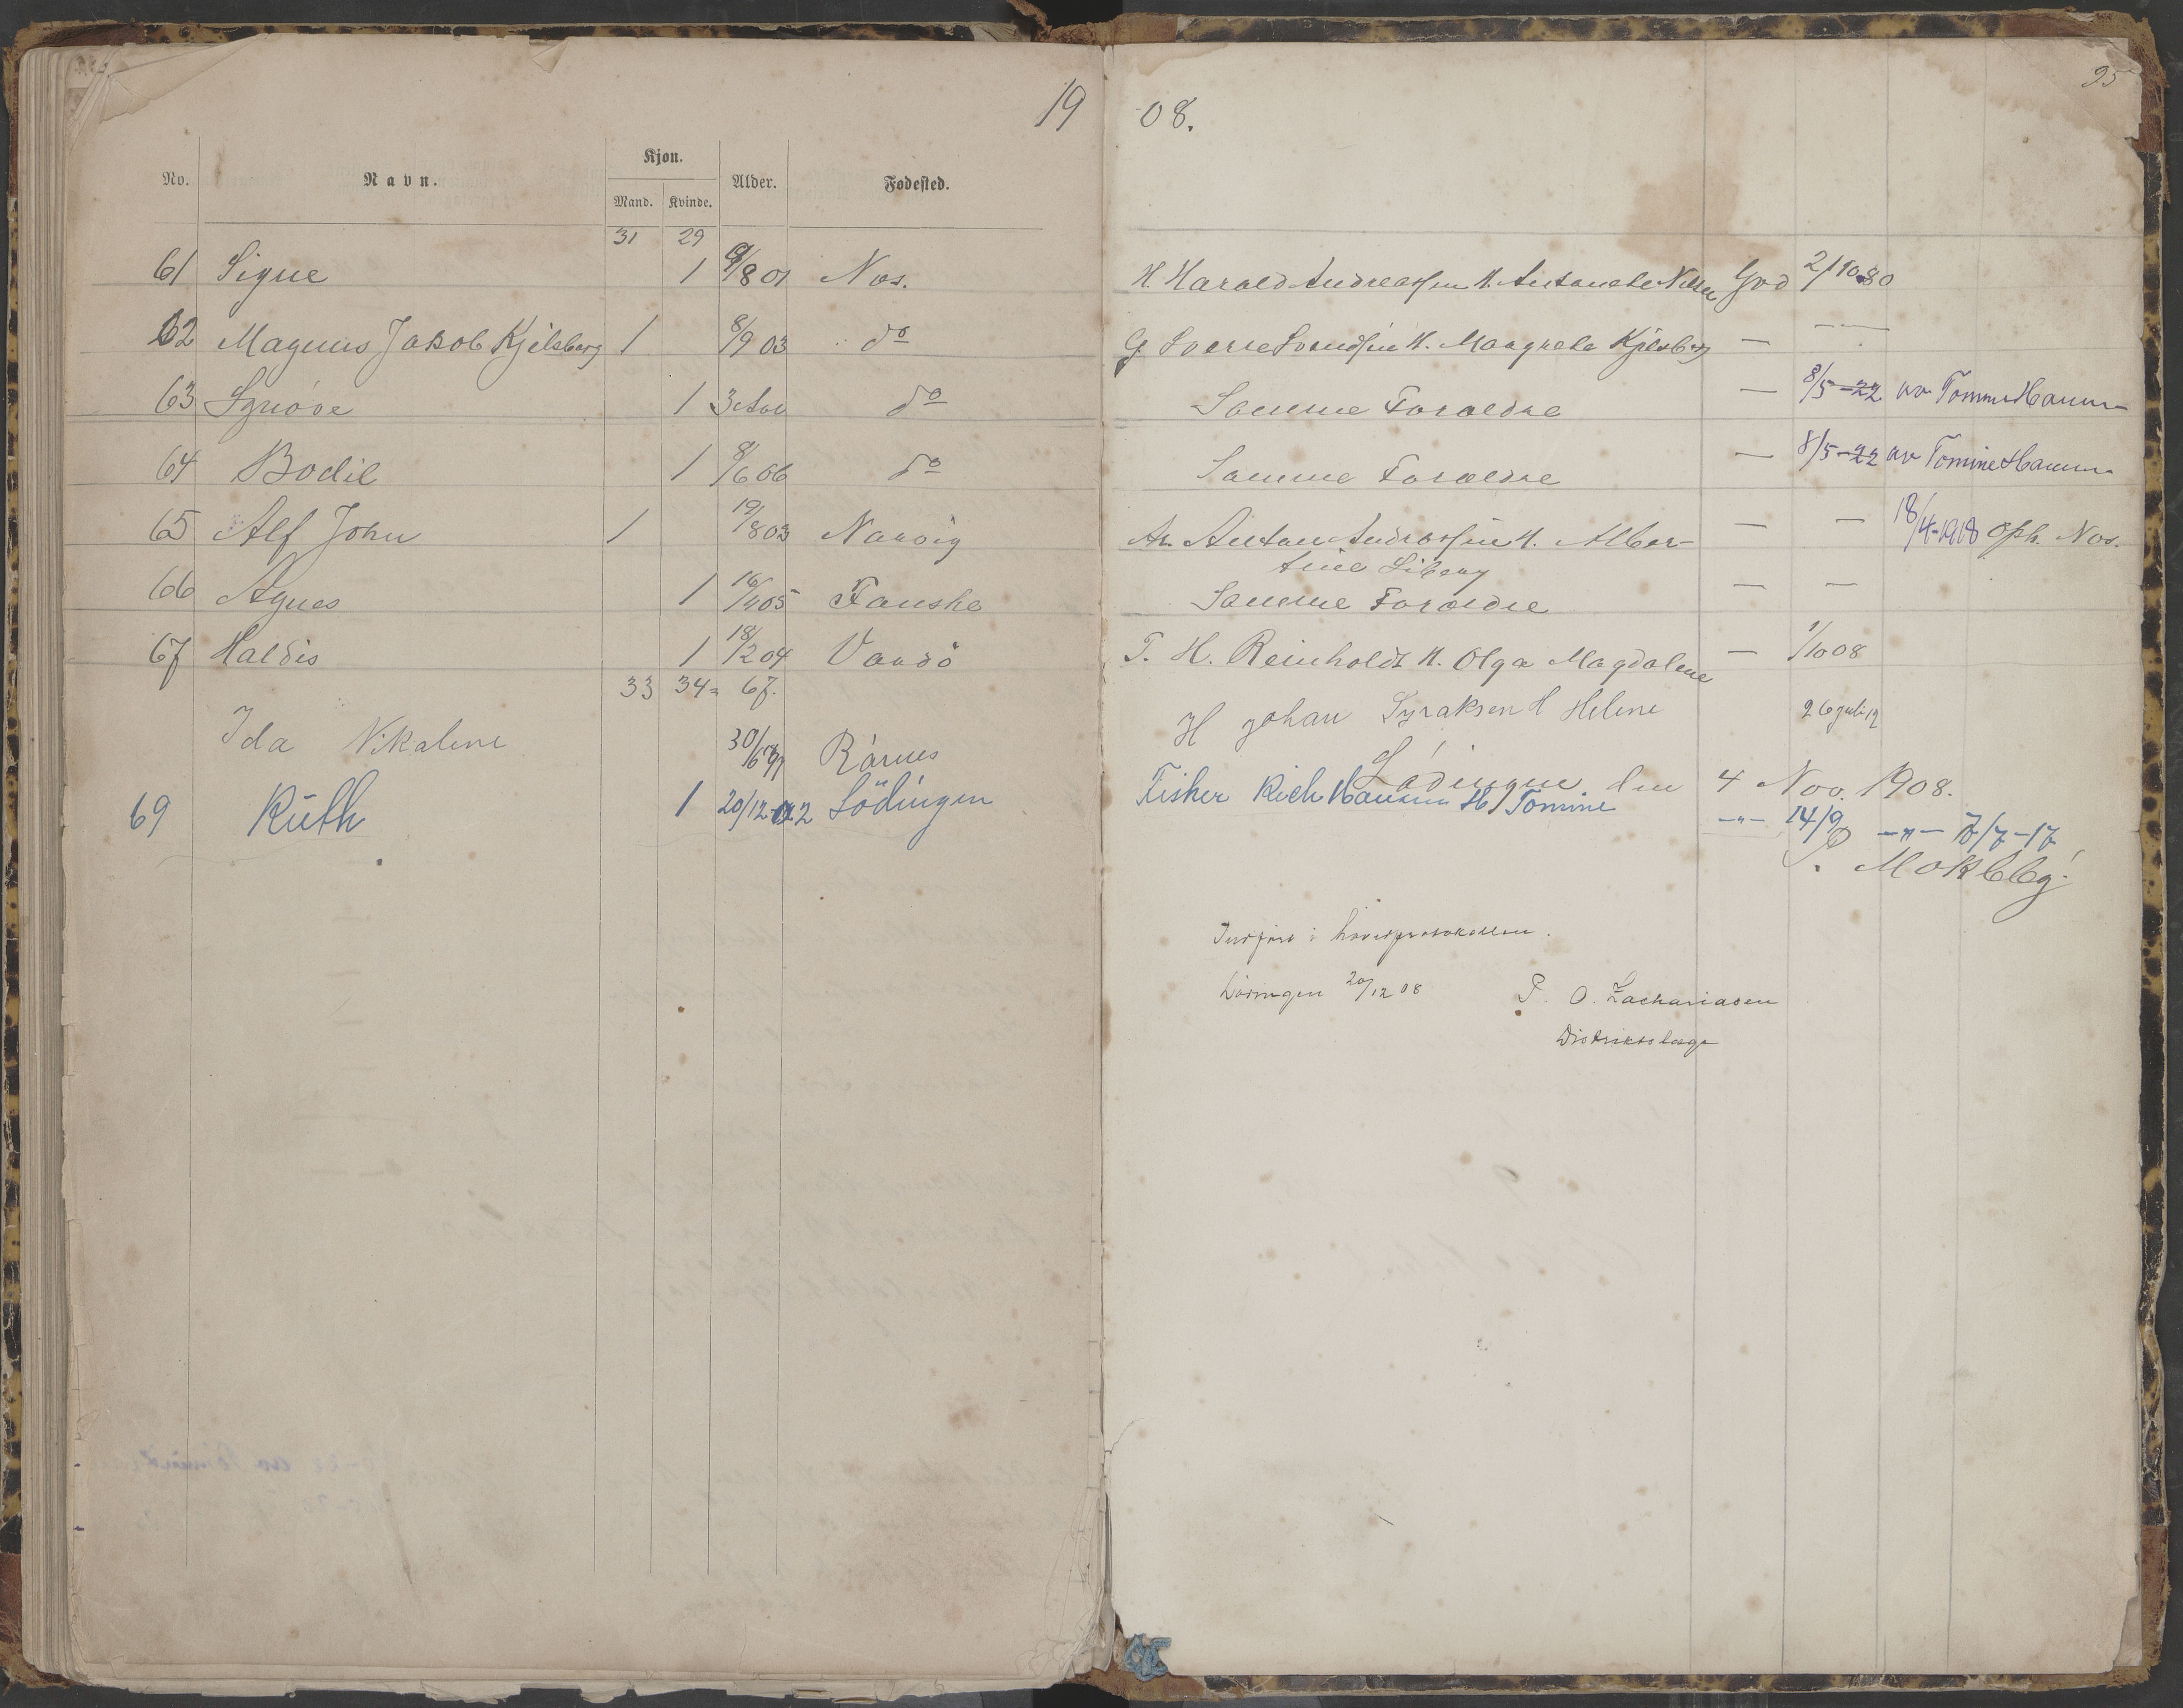 19 08.
95
No. Navn. Kjøn. Alder. Fødested.
Mand. Kvinde.
31 29
61 Signe 1 9/8 01 Næs. H. Harald Andreassen H. Antonete Nilsen God 2/10 80
62 Magnus Jakob Kjelsberg 1 8/9 03 do G. Sverre Svendsen H. Margrete Kjelsberg —
63 Synøve 1 3 do Samme Forældre — 8/5-22 av Tomine Hansen
64 Bodil 1 8/6 06 do Samme Forældre — 8/5-22 av Tomine Hansen
65 Alf John 1 19/8 03 Narvig Anton Andrassen H. Alber- — — 18/4-1918 Oph. Næs.
tine Liberg
66 Agnes 1 16/4 05 Fauske Samme Forældre — —
67 Haldis 1 18/2 04 Vardø T. H. Reinholdt H. Olga Magdalene — 1/10 08
33 34 = 67.
Ida Nikaline 30/6 97 Rånes H Johan Syraksen H Heline 26 juli 12
Lødingen den 4 Nov. 1908.
69 Ruth 1 20/12-12 Lödingen Fisker Rich Hansen H/ Tomine —"— 14/9 —"— 7/7-17
Indført i hovedprotokollen.
Lødingen 20/12 08 P. O. Zachariasen
Distriktslæge